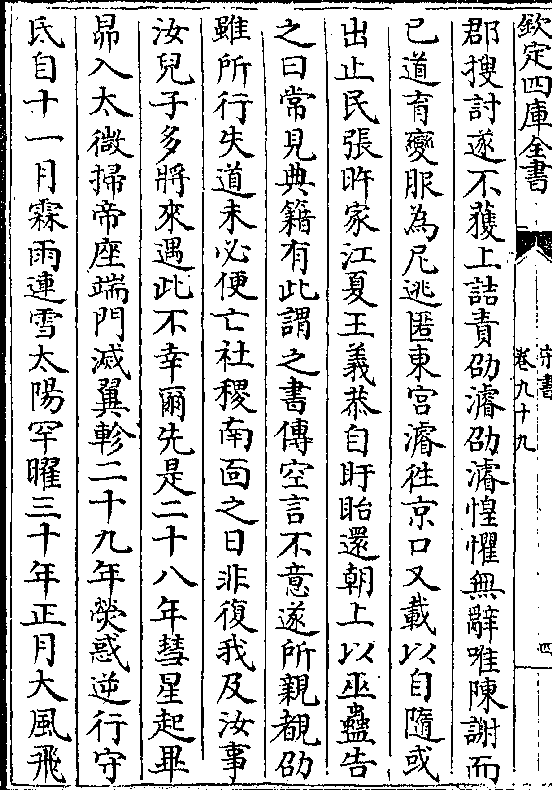 欽定四庫全書
宋書
卷九十九
四
郡搜討遂不獲上詰責劭濬劭濬惶懼無辭唯陳謝而
已道育變服為尼逃匿東宮濬往京口又載以自隨或
出止民張旿家江夏王義恭自盱眙還朝上以巫蠱告
之曰常見典籍有此謂之書傳空言不意遂所親覩劭
雖所行失道未必便亡社稷南面之日非復我及汝事
汝兒子多將來遇此不幸爾先是二十八年彗星起畢
昴入太微掃帝座端門滅翼軫二十九年熒惑逆行守
氐自十一月霖雨連雪太陽罕曜三十年正月大風飛